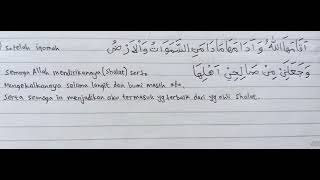 setelah iqomah
أَقَامَهَا اللهُ وَأَدَامَهَا مَادَامَتِ السَّمَوَاتُ وَالْأَرْضُ
وَجَعَلَنِيْ مِنْ صَالِحِيْ أَهْلِهَا
semoga Allah mendirikannya (sholat) serta
Mengekalkannya selama langit dan bumi masih ada.
Serta semoga ia menjadikan aku termasuk yg terbaik dari yg ahli sholat.